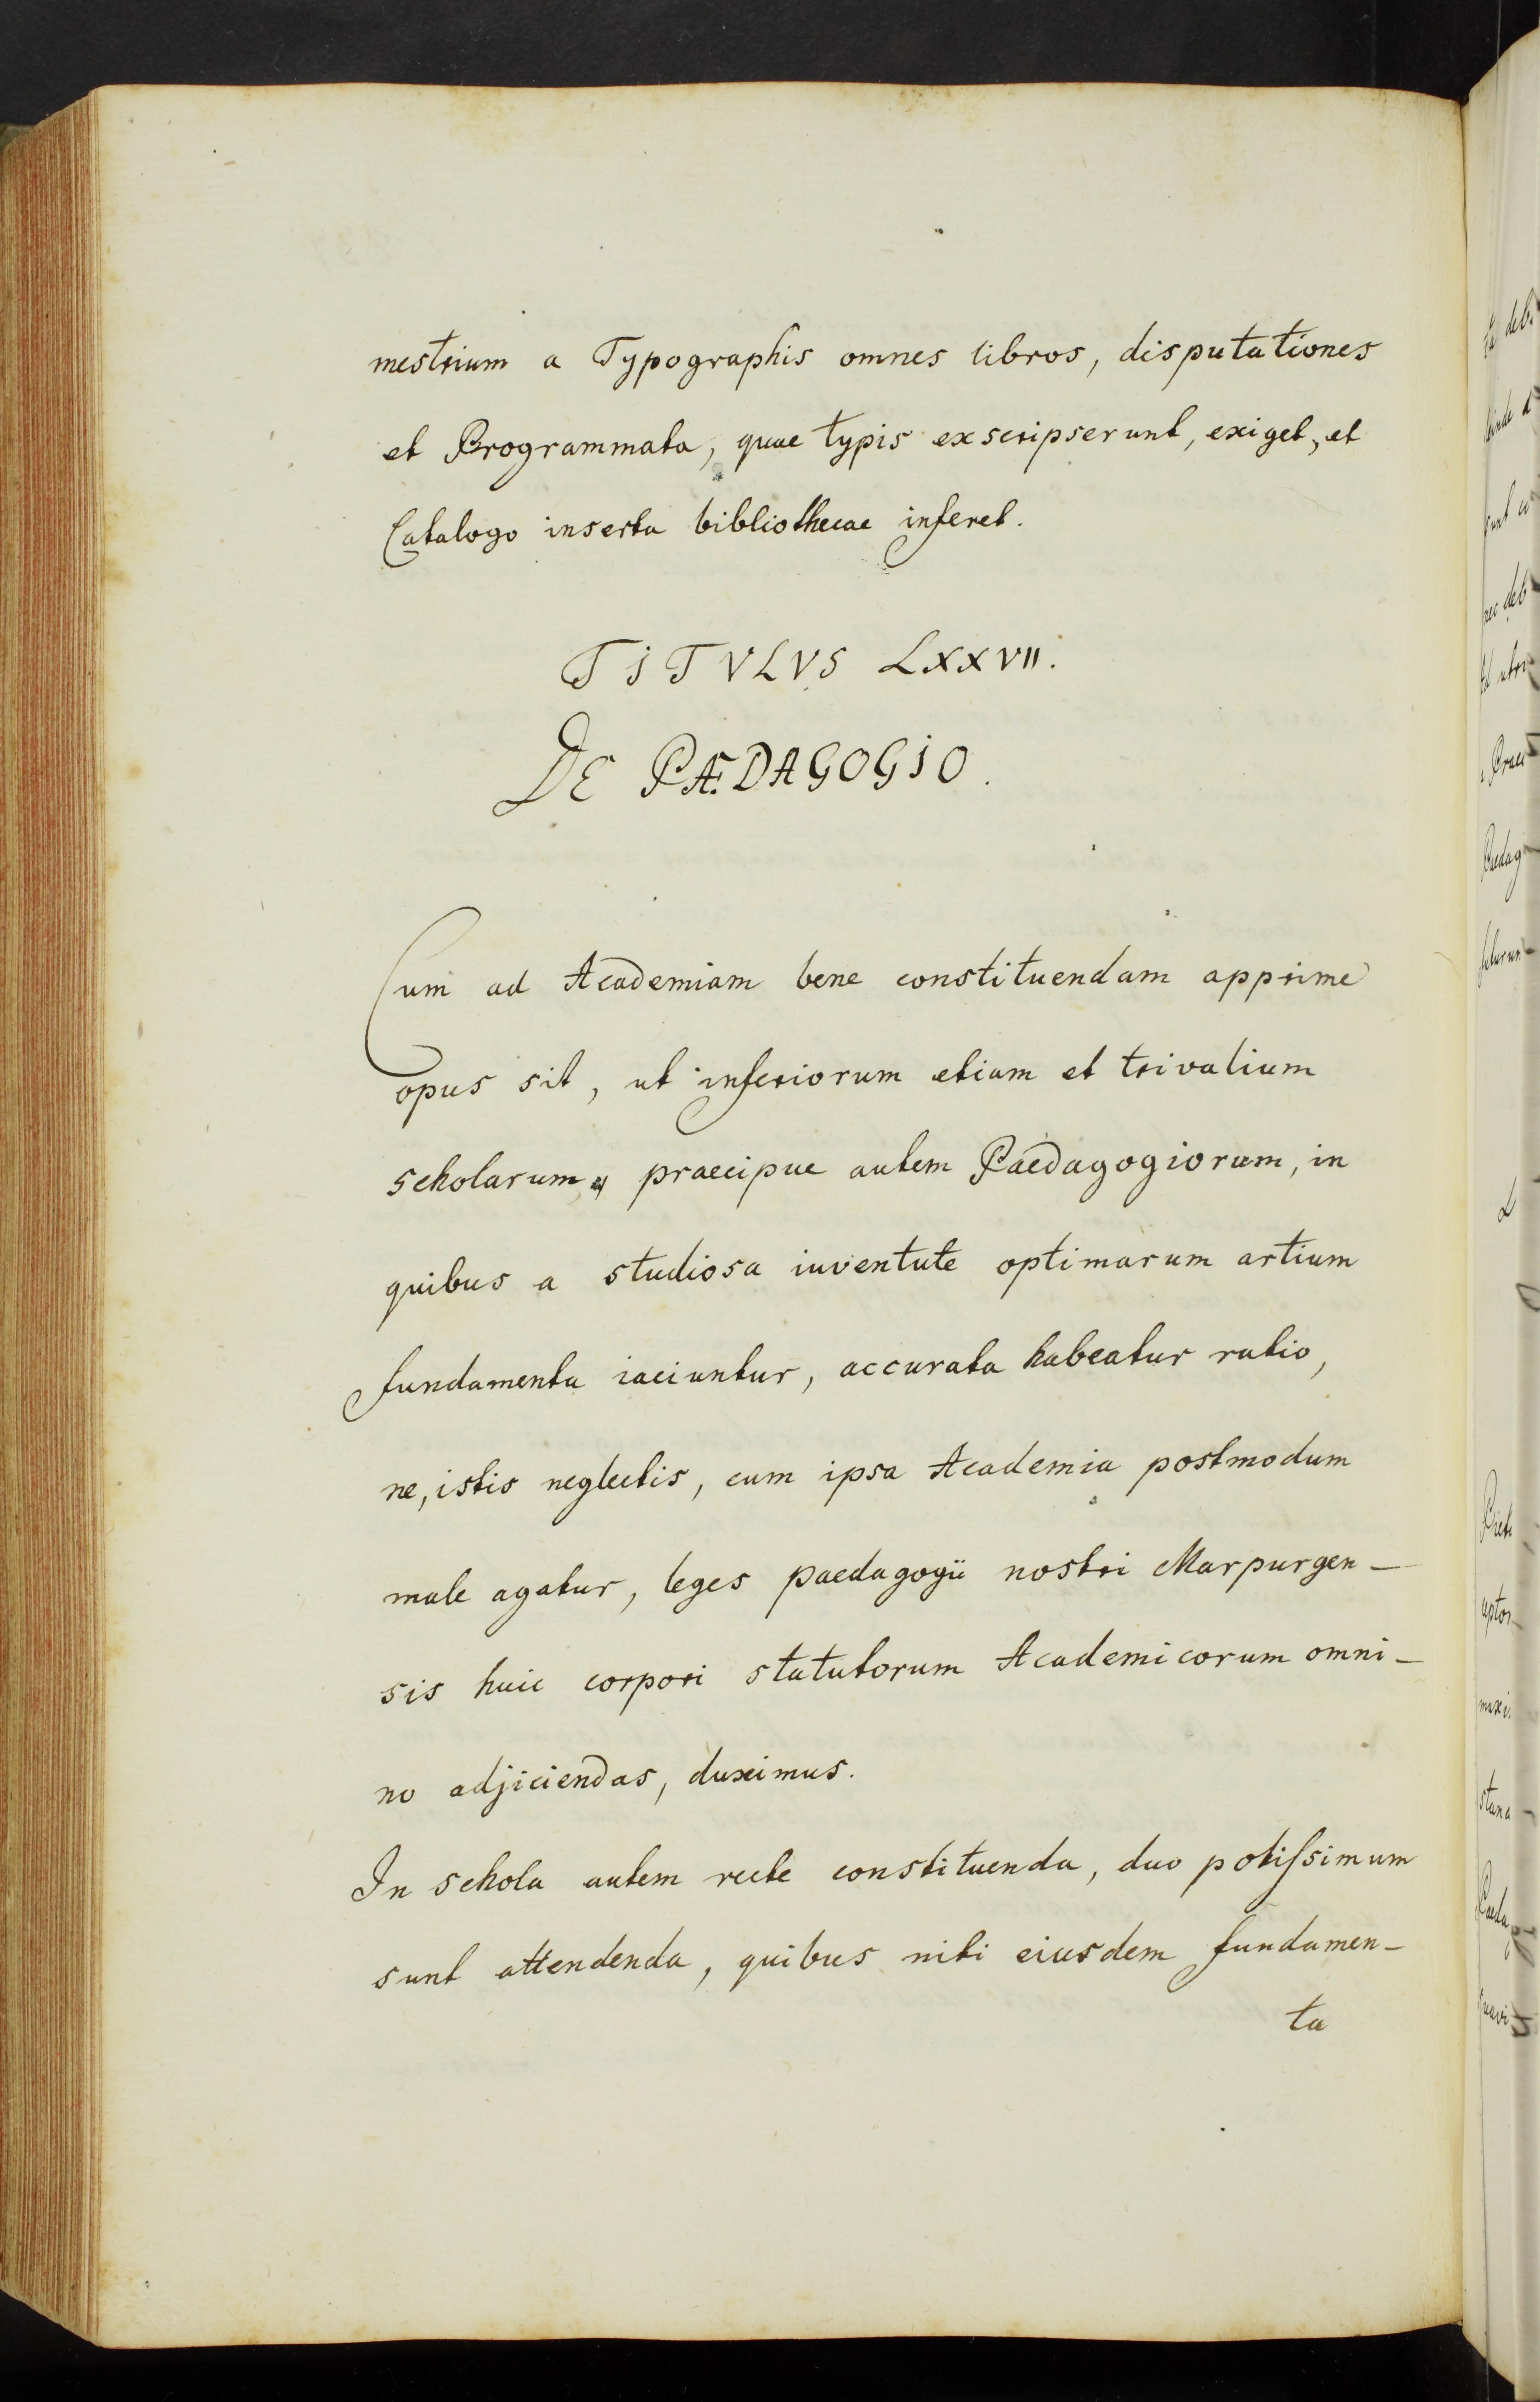 mestrium a Typographis omnes libros, disputationes
et Programmata, quae typis exscripserunt, exiget, et
Catalogo inserta bibliothecae inferet.
TITVLVS LXXVII.
DE PÆDAGOGIO.
Cum ad Academiam bene constituendam apprime
opus sit, ut inferiorum etiam et trivalium
scholarum, praecipue autem Paedagogiorum, in
quibus a studiosa iuventute optimarum artium
fundamenta iaciuntur, accurata habeatur ratio,
ne, istis neglectis, cum ipsa Academia postmodum
male agatur, leges paedagogii nostri Marpurgen-
sis huic corpori statutorum Academicorum omni-
no adjiciendas, duximus.
In schola autem recte constituenda, duo potiſsimum
sunt attendenda, quibus niti eiusdem fundamen-
ta